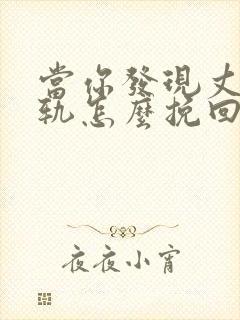 當你發現丈
軌怎麼挽回
夜夜小宵